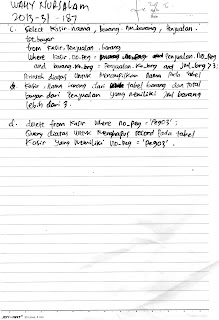 WAHY NURSALAM
2013-31-187
C. Select kasir.nama, barang.nm.barang, Penjualan.
tot.bayar
from kasir, Penjualan, barang
Where kasir.no_peg = Penjualan.no_peg
and barang.kd_brg = Penjualan.kd_brg and jml_brg > 3;
Printah diatas untuk Menampilkan Nama pada tabel
kasir, nama barang dari tabel barang dan total
bayar dari Penjualan yang memiliki jml barang
lebih dari 3.
d. delete from kasir where no_peg = 'Peg03';
Query diatas untuk Menghapus record pada tabel
kasir yang Memiliki no_peg = 'Peg03'.